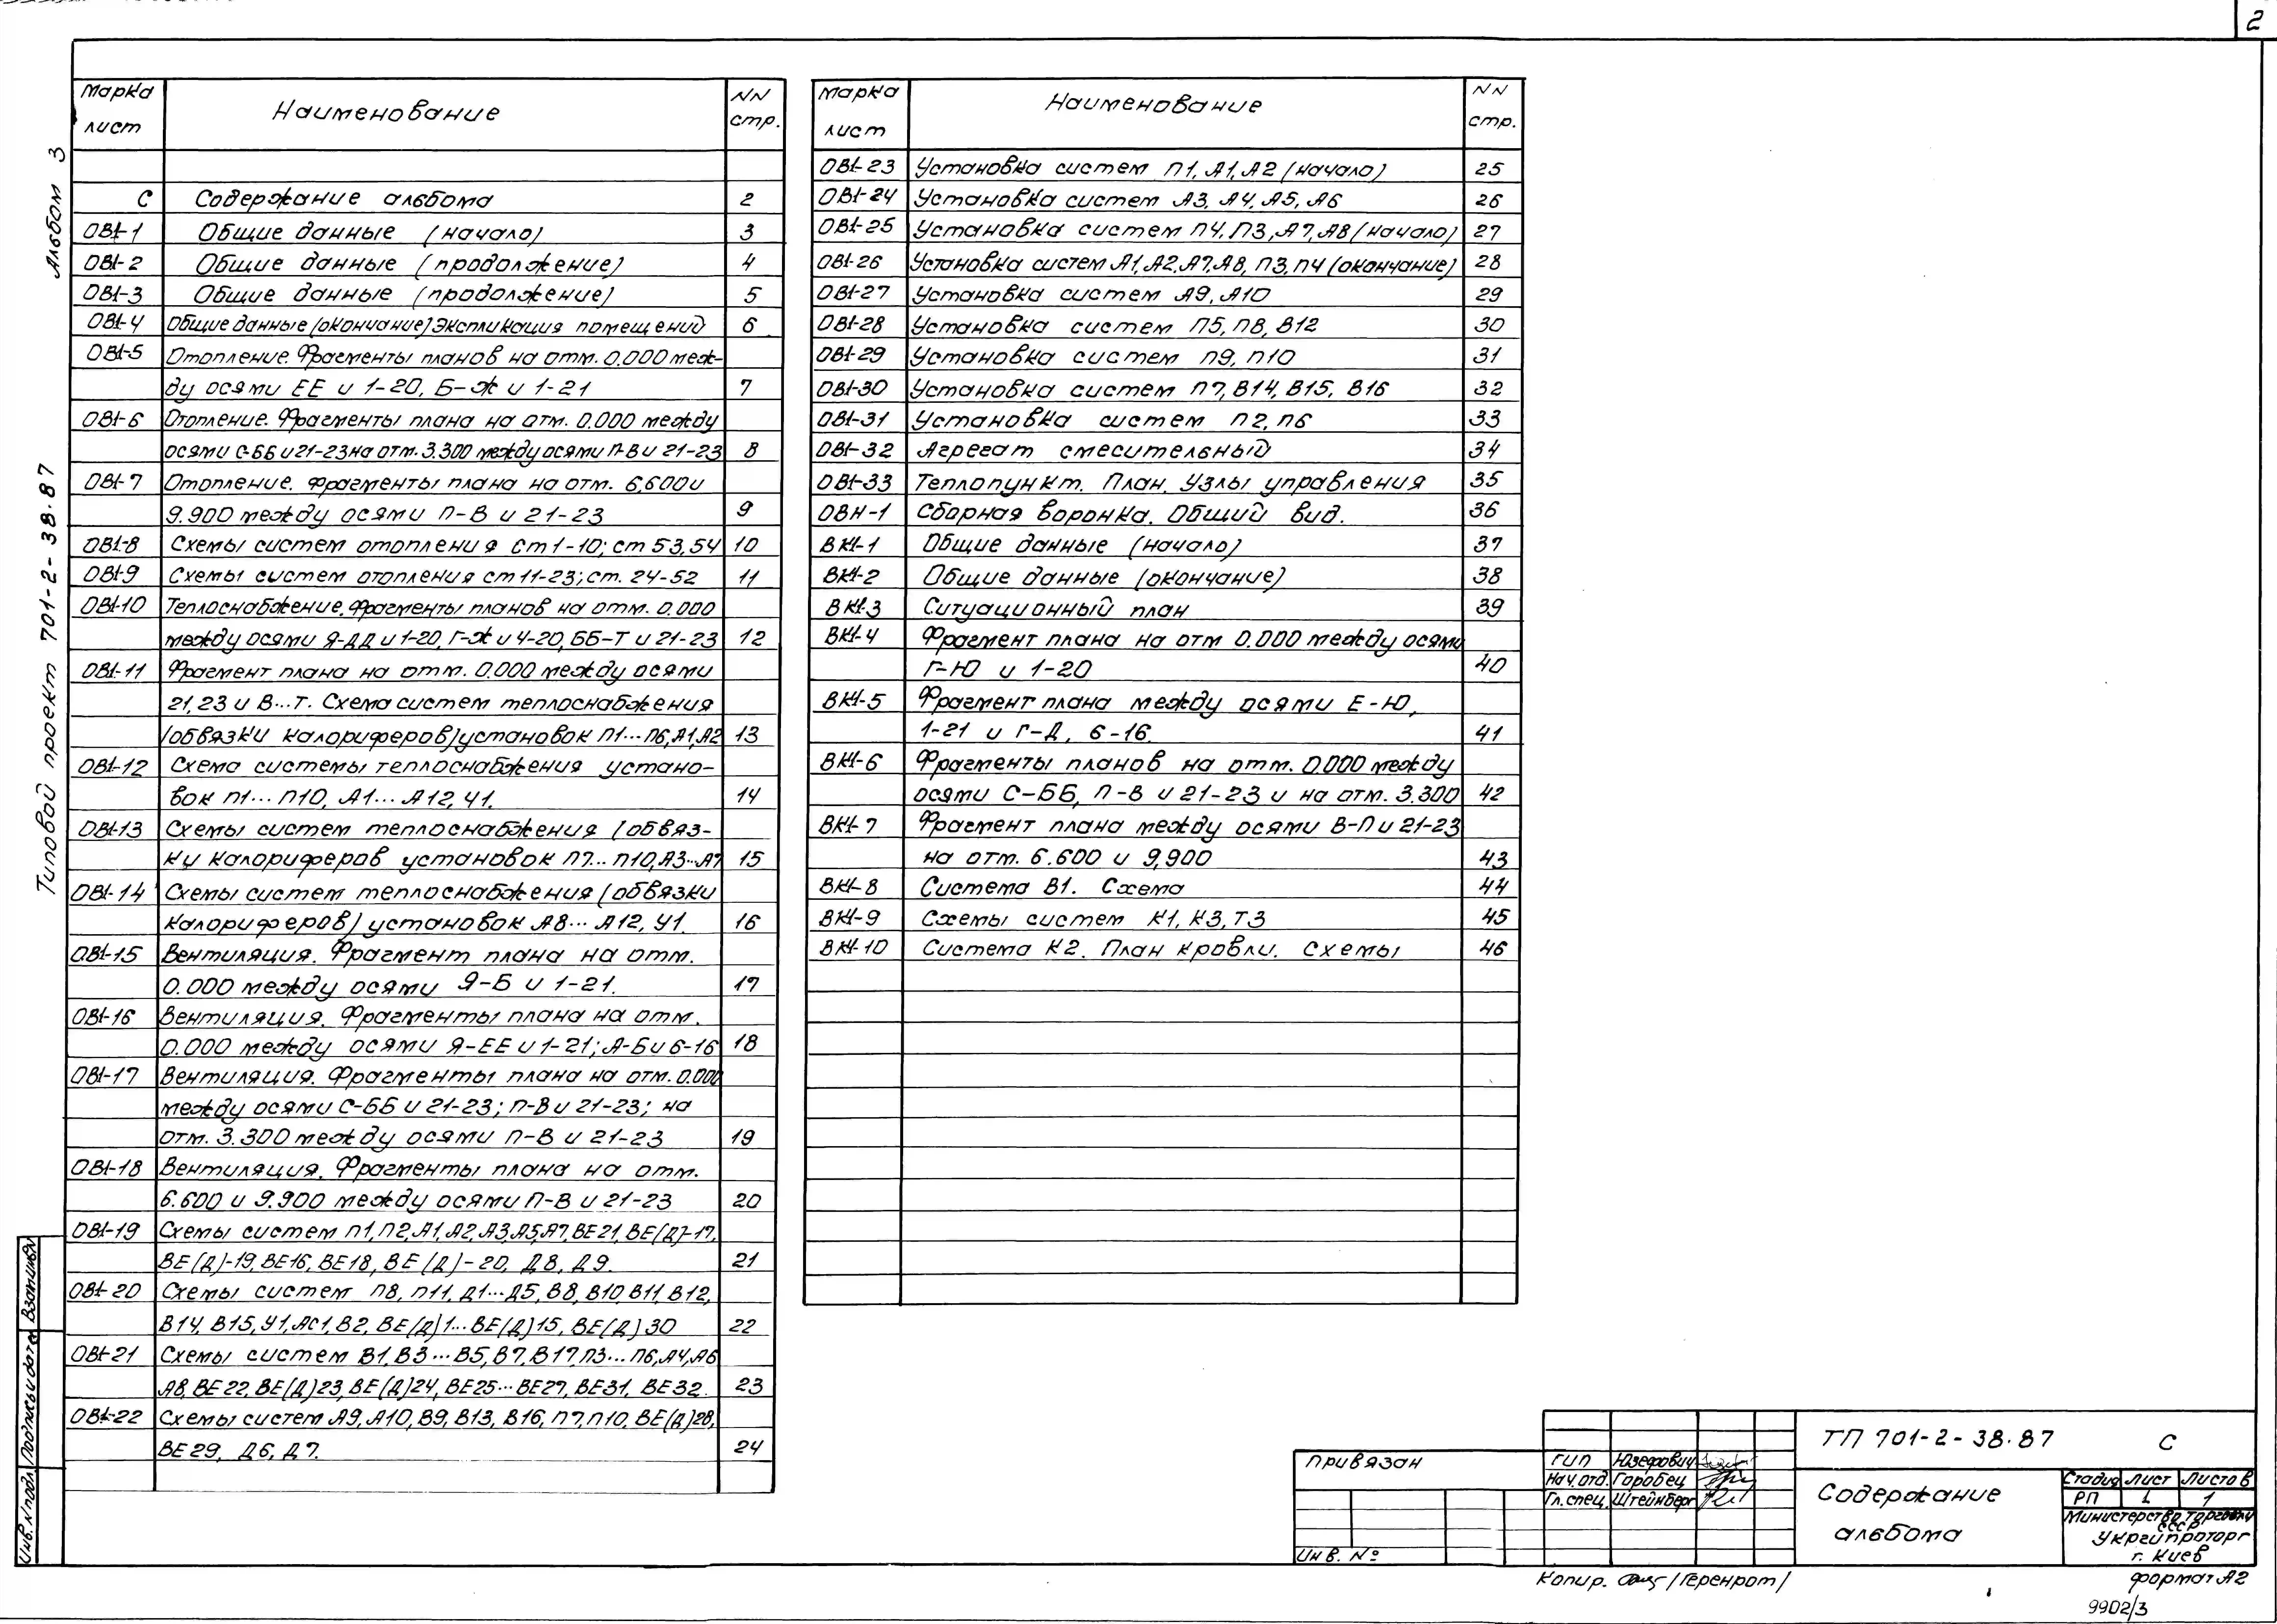 2
Альбом 3
Типовой проект 701-2-38.87
Марка лист Наименование NN стр.
С Содержание альбома 2
ОВ1-1 Общие данные (начало) 3
ОВ1-2 Общие данные (продолжение) 4
ОВ1-3 Общие данные (продолжение) 5
ОВ1-4 Общие данные (окончание) Экспликация помещений 6
ОВ1-5 Отопление. Фрагменты планов на отм. 0.000 меж-
ду осями ЕЕ и 1-20, Б-Ж и 1-21 7
ОВ1-6 Отопление. Фрагменты плана на отм. 0.000 между
осями С-ББ и 21-23 на отм. 3.300 между осями П-В и 21-23 8
ОВ1-7 Отопление. Фрагменты плана на отм. 6,600 и
9.900 между осями П-В и 21-23 9
ОВ1-8 Схемы систем отопления Ст 1-10; ст 53,54 10
ОВ1-9 Схемы систем отопления ст 11-23; ст. 24-52 11
ОВ1-10 Теплоснабжение. Фрагменты планов на отм. 0.000
между осями Я-ДД и 1-20, Г-Ж и 4-20, ББ-Т и 21-23 12
ОВ1-11 Фрагмент плана на отм. 0.000 между осями
21,23 и В...Т. Схема систем теплоснабжения
(обвязки калориферов) установок П1...П6, А1, А2 13
ОВ1-12 Схема системы теплоснабжения устано-
вок П1...П10, А1...А12, У1. 14
ОВ1-13 Схемы систем теплоснабжения (обвяз-
ки калориферов установок П7...П10, А3...А7 15
ОВ1-14 Схемы систем теплоснабжения (обвязки
калориферов) установок А8...А12, У1. 16
ОВ1-15 Вентиляция. Фрагмент плана на отм.
0.000 между осями Я-Б и 1-21. 17
ОВ1-16 Вентиляция. Фрагменты плана на отм.
0.000 между осями Я-ЕЕ и 1-21; А-Б и 6-16 18
ОВ1-17 Вентиляция. Фрагменты плана на отм. 0.000
между осями С-ББ и 21-23; П-В и 21-23; на
отм. 3.300 между осями П-В и 21-23 19
ОВ1-18 Вентиляция. Фрагменты плана на отм.
6.600 и 9.900 между осями П-В и 21-23 20
ОВ1-19 Схемы систем П1, П2, А1, А2, А3, А5, А7, ВЕ21, ВЕ(Д)-17,
ВЕ(Д)-19, ВЕ16, ВЕ18, ВЕ(Д)-20, Д8, Д9. 21
ОВ1-20 Схемы систем П8, П11, Д1...Д5, В8, В10, В11, В12,
В14, В15, У1, АС1, В2, ВЕ(Д)1...ВЕ(Д)15, ВЕ(Д)30 22
ОВ1-21 Схемы систем В1, В3...В5, В7, В17, П3...П6, А4, А6
А8, ВЕ22, ВЕ(Д)23, ВЕ(Д)24, ВЕ25...ВЕ27, ВЕ31, ВЕ32. 23
ОВ1-22 Схемы систем А9, А10, В9, В13, В16, П7, П10, ВЕ(Д)28,
ВЕ29, Д6, Д7. 24
Марка лист Наименование NN стр.
ОВ1-23 Установка систем П1, А1, А2 (начало) 25
ОВ1-24 Установка систем А3, А4, А5, А6 26
ОВ1-25 Установка систем П4, П3, А7, А8 (начало) 27
ОВ1-26 Установка систем А1, А2, А7, А8, П3, П4 (окончание) 28
ОВ1-27 Установка систем А9, А10 29
ОВ1-28 Установка систем П5, П8, В12 30
ОВ1-29 Установка систем П9, П10 31
ОВ1-30 Установка систем П7, В14, В15, В16 32
ОВ1-31 Установка систем П2, П6 33
ОВ1-32 Агрегат смесительный 34
ОВ1-33 Теплопункт. План. Узлы управления 35
ОВН-1 Сборная воронка. Общий вид. 36
ВК1-1 Общие данные (начало) 37
ВК1-2 Общие данные (окончание) 38
ВК1-3 Ситуационный план 39
ВК1-4 Фрагмент плана на отм 0.000 между осями
Г-Ю и 1-20 40
ВК1-5 Фрагмент плана между осями Е-Ю,
1-21 и Г-Д, 6-16. 41
ВК1-6 Фрагменты планов на отм. 0.000 между
осями С-ББ, П-В и 21-23 и на отм. 3.300 42
ВК1-7 Фрагмент плана между осями В-П и 21-23
на отм. 6.600 и 9,900 43
ВК1-8 Система В1. Схема 44
ВК1-9 Схемы систем К1, К3, Т3 45
ВК1-10 Система К2. План кровли. Схемы 46
Инв. N подл. Подпись и дата Взам.инв.N
Привязан
Инв. №
ГИП Юзефович
Нач.отд. Горобец
Гл.спец. Штейнберг
ТП 701-2-38.87 С
Содержание
альбома
Стадия Лист Листов
РП 1 1
Министерство торговли
СССР
Укргипроторг
г. Киев
Копир. /Геренрот/
формат А2
9902/3